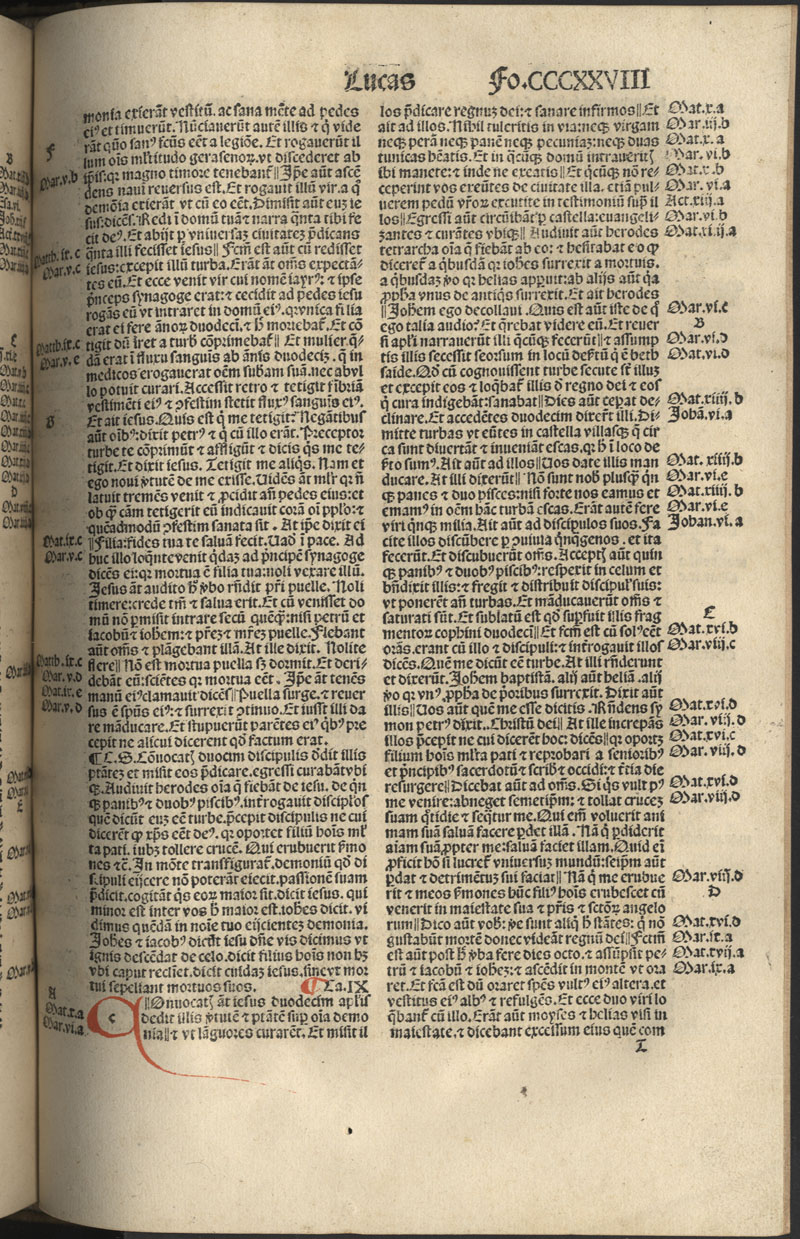 Lucas Fo.CCCXXVIII
monia exierāt vestitū. ac sana mēte ad pedes
eiꝰ et timuerūt. Nūciauerūt autē illis ⁊ q̇ vide
rāt quō sanꝰ fcūs eēt a legiōe. Et rogauerūt il
lum oīs mltitudo gerasenoꝝ.vt discederet ab
ip̄is:qꝛ magno timore tenebant᷑‖Ip̄e aūt ascē
dens nauī reuersus est. Et rogauit illū vir.a q̄
demōia exierāt vt cū eo eēt. Dimisit aūt euꝫ ie
sus:dicēs. Redi ī domū tuā ⁊ narra q̄nta tibi fe
cit deꝰ. Et abijt ꝑ vniuersaꝫ ciuitateꝫ p̄dicans
q̄nta illi fecisset iesus‖Fcm̄ est aūt cū redisset
iesus:excepit illū turba. Erāt āt om̄s expectā-
tes eū. Et ecce venit vir cui nomē iayrꝰ: ⁊ ipse
p̄nceps synagoge erat: ⁊ cecidit ad pedes iesu
rogās eū vt intraret in domum eiꝰ.qꝛvnica filia
erat ei fere ānoꝝ duodecī. ⁊ h̄ moriebat᷑. Et cō
tigit dū iret a turb̄ cōprimebat᷑‖Et mulier.q̄-
dā erat ī fluxu sanguīs ab ānis duodeciꝫ. q̄ in
medicos erogauerat oēm s̄bam suā.nec abvl
lo potuit curari. Accessit retro ⁊ tetigit fībriā
vestimēti eiꝰ ⁊ ꝯfestim stetit fluxꝰ sanguīs eiꝰ.
Et ait iesus. Quis est q̇ me tetigit: Negātibus
aūt oībꝰ: dixit petrꝰ ⁊ q̇ cū illo erāt. Preceptor
turbe te cōprimūt ⁊ affligūt ⁊ dicis q̇s me te-
tigit. Et dixit iesus. Tetigit me aliq̇s. Nam et
ego noui v̇tutē de me exisse. Uidēs āt mlr̄ qꝛ nō
latuit tremēs venit ⁊ ꝓcidit an̄ pedes eius: et
ob q̄ cām tetigerit eū indicauit corā oī pplo: ⁊
quēadmodū ꝯfestim sanata sit. At ip̄e dixit ei
‖Filia:fides tua te saluā fecit. Uad ī pace. Ad
huc illo loq̄nte venit q̇dāꝫ ad p̄ncipē synagoge
dicēs ei:qꝛ mortua ē filia tua:noli vexare illū.
Iesus āt audito h̄ v̇bo rn̄dit pr̄i puelle. Noli
timere:crede tm̄ ⁊ salua erit. Et cū venisset do
mū nō p̄misit intrare secū quēq̄ꝫ:nisi petrū et
iacobū ⁊ iohem: ⁊ pr̄eꝫ ⁊ mr̄eꝫ puelle. Flebant
aūt om̄s ⁊ plāgebant illā. At ille dixit. Nolite
flere‖Nō est mortua puella sꝫ dormit. Et deri-
debāt eū:sciētes qꝛ mortua eēt. Ip̄e āt tenēs
manū eiꝰclamauit dicēs‖Puella surge. ⁊ reuer
sus ē spūs eiꝰ: ⁊ surrexit ꝯtinuo. Et iussit illi da
re māducare. Et stupuerūt parētes eiꝰ q̇bꝰ pre
cepit ne alicui dicerent qd̄ factum erat.
¶ C.S. Cōuocatꝭ duocim discipulis d̄dit illis
ptātez et misit eos p̄dicare.egressi curabātvbi
qꝫ. Audiuit herodes oīa q̄ fiebāt de iesu. de q̇n
qꝫ panibꝰ ⁊ duobꝰ piscibꝰ.int̓rogauit disciplōs
quē dicūt euꝫ eē turbe.p̄cepit discipulis ne cui
dicerēt qꝛ xp̄s eēt deꝰ. qꝛ oportet filiū hoīs ml̄
ta pati. iubꝫ tollere crucē. Qui erubuerit f̓mo
nes ⁊cē. In mōte transfigurat᷑.demoniū qd̄ di
scipuli eijcere nō poterāt eiecit.passionē suam
p̄dicit.cogitāt q̇s eoꝝ maior sit.dicit iesus. qui
minor est inter vos h̄ maior est.iohēs dicit. vi
dimus quēdā in noīe tuo eijcientez demonia.
Johēs ⁊ iacobꝰ dicūt iesu dn̄e vis dicimus vt
ignis descēdat de celo.dicit filius hoīs non hꝫ
vbi caput recliet.dicit cuidaꝫ iesus.sinevt mor
tui sepeliant mortuos suos. ¶Ca.IX
c ‖Onuocatꝭ āt iesus duodecim apl̄is
dedit illis v̇tutē ⁊ ptātē suꝑ oīa demo
nia‖⁊ vt lāguores curarēt. Et misit il
los p̄dicare regnuꝫ dei: ⁊ sanare infirmos‖Et
ait ad illos. Nihil tuleritis in via:neqꝫ virgam
neqꝫ perā neqꝫ panē neqꝫ pecuniaꝫ:neqꝫ duas
tunicas hēatis. Et in q̄cūqꝫ domū intraueritꝭ
ibi manete: ⁊ inde ne exeatis‖Et q̇cūqꝫ nō re-
ceperint vos exeūtes de ciuitate illa. etiā pul-
uerem pedū vr̄oꝝ excutite in testimoniū suꝑ il
los‖Egressi aūt circuibāt ꝑ castella:euangeli-
zantes ⁊ curātes vbiqꝫ‖Audiuit aūt herodes
tetrarcha oīa q̄ fiebāt ab eo: ⁊ hesitabat eo ꝙ
diceret᷑ a q̇busdā qꝛ iohēs surrexit a mortuis.
a q̇busdaꝫ v̇o qꝛ helias apꝑuit:ab alijs aūt qꝛ
ꝓpha vnus de antiq̇s surrexit. Et ait herodes
‖Johem ego decollaui. Quis est aūt iste de q̄
ego talia audio: Et q̄rebat videre eū. Et reuer
si apl̄i narrauerūt illi q̄cūqꝫ fecerūt‖⁊ assump
tis illis secessit seorsum in locū desertū q̄ ē beth
saide. Qd̄ cū cognouissent turbe secute st̄ illuꝫ
et excepit eos ⁊ loq̄bat᷑ illis d̄ regno dei ⁊ eos
q̇ cura indigebāt:sanabat‖Dies aūt cepat de-
clinare. Et accedētes duodecim dixer̄t illi. Di-
mitte turbas vt eūtes in castella villasqꝫ q̄ cir
ca sunt diuertāt ⁊ inueniāt escas.qꝛ h̄ ī loco de
s̓to sumꝰ. Ait aūt ad illos‖Uos date illis man
ducare. At illi dixerūt‖Nō sunt nob̄ plusq̄ꝫ q̇n
qꝫ panes ⁊ duo pisces:nisi forte nos eamus et
emamꝰ in oēm hāc turbā escas. Erāt autē fere
viri q̇nqꝫ milia. Ait aūt ad discipulos suos. Fa
cite illos discūbere ꝑ ꝯuiuia q̇nq̇genos. et ita
fecerūt. Et discubuerūt om̄s. Acceptꝭ aūt quin
qꝫ panibꝰ ⁊ duobꝰ piscibꝰ:respexit in celum et
bn̄dixit illis: ⁊ fregit ⁊ distribuit discipul̓suis:
vt ponerēt an̄ turbas. Et māducauerūt om̄s ⁊
saturati sūt. Et sublatū est qd̄ suꝑfuit illis frag
mentoꝝ cophini duodecī‖Et fcm̄ est cū solꝰeēt
orās.erant cū illo ⁊ discipuli: ⁊ int̓rogauit illos
dicēs. Quē me dicūt eē turbe. At illi rn̄derunt
et dixerūt. Johem baptistā. alij aūt heliā. alij
v̇o qꝛ vnꝰ ꝓpha de p̄oribus surrexit. Dixit aūt
illis‖Uos aūt quē me esse dicitis. Rn̄dens sy
mon petrꝰ dixit. Christū dei‖At ille increpās
illos p̄cepit ne cui dicerēt hoc: dicēs‖qꝛ oportꝫ
filium hoīs ml̄ta pati ⁊ reprobari a senioribꝰ
et p̄ncipibꝰ sacerdotū ⁊ scrib̄ ⁊ occidi: ⁊ t̓tia die
resurgere‖Dicebat aūt ad om̄s. Si q̇s vult pꝰ
me venire:abneget semetip̄m: ⁊ tollat crucez
suam q̄tidie ⁊ seq̇tur me. Qui em̄ voluerit ani
mam suā saluā facere ꝑdet illā. Nā q̇ ꝑdiderit
aīam suā ꝓpter me:saluā faciet illam. Quid eī
ꝓficit hō si lucret᷑ vniuersuꝫ mundū:seip̄m aūt
ꝑdat ⁊ detrimētuꝫ sui faciat‖Nā q̇ me erubue
rit ⁊ meos f̓mones hūc filiꝰ hoīs erubescet cū
venerit in maiestate sua ⁊ pr̄is ⁊ sctōꝝ angelo
rum‖Dico aūt vob̄: v̇e sunt aliq̇ h̄ stātes: q̇ nō
gustabūt mortē donec videāt regnū dei‖Fctm̄
est aūt post h̄ v̇ba fere dies octo. ⁊ assūpsit pe-
trū ⁊ iacobū ⁊ iohēꝫ: ⁊ ascēdit in montē vt ora
ret. Et fcm̄ est dū oraret spēs vultꝰ eiꝰ altera.et
vestitus eiꝰ albꝰ ⁊ refulgēs. Et ecce duo viri lo
q̄bant᷑ cū illo. Erāt aūt moyses ⁊ helias visi in
maiestate. ⁊ dicebant excessum eius quē com
f
Mar.v.b
Matth.ix.c
Mar.v.c
Matth.ix.c
Mar.v.e
B
Mat.ix.c
Mar.v.c
Matth.ix.c
Mar.v.d
Mat.ix.e
Mar.v.d
A
Mat.x.a
Mar.vi.a
Mat.x.a
Mar.iij.b
Mat.x.a
Mar.vi.b
Mat.x.b
Mar.vi.a
Act.xiij.a
Mar.vi.b
Mat.xiiij.a
Mar.vi.c
B
Mar.vi.d
Mat.vi.d
Mat.xiiij.b
Johā.vi.a
Mat.xiiij.b
Mar.vi.e
Mat.xiiij.b
Mar.vi.e
Johan.vi.a
C
Mat.xvi.b
Mar.viij.c
Mat.xvi.d
Mar.viij.d
Mat.xvi.c
Mar.viij.d
Mat.xvi.d
Mar.viij.d
Mar.viij.d
D
Mat.xvi.d
Mar.ix.a
Mat.xvij.a
Mar.ix.a
L